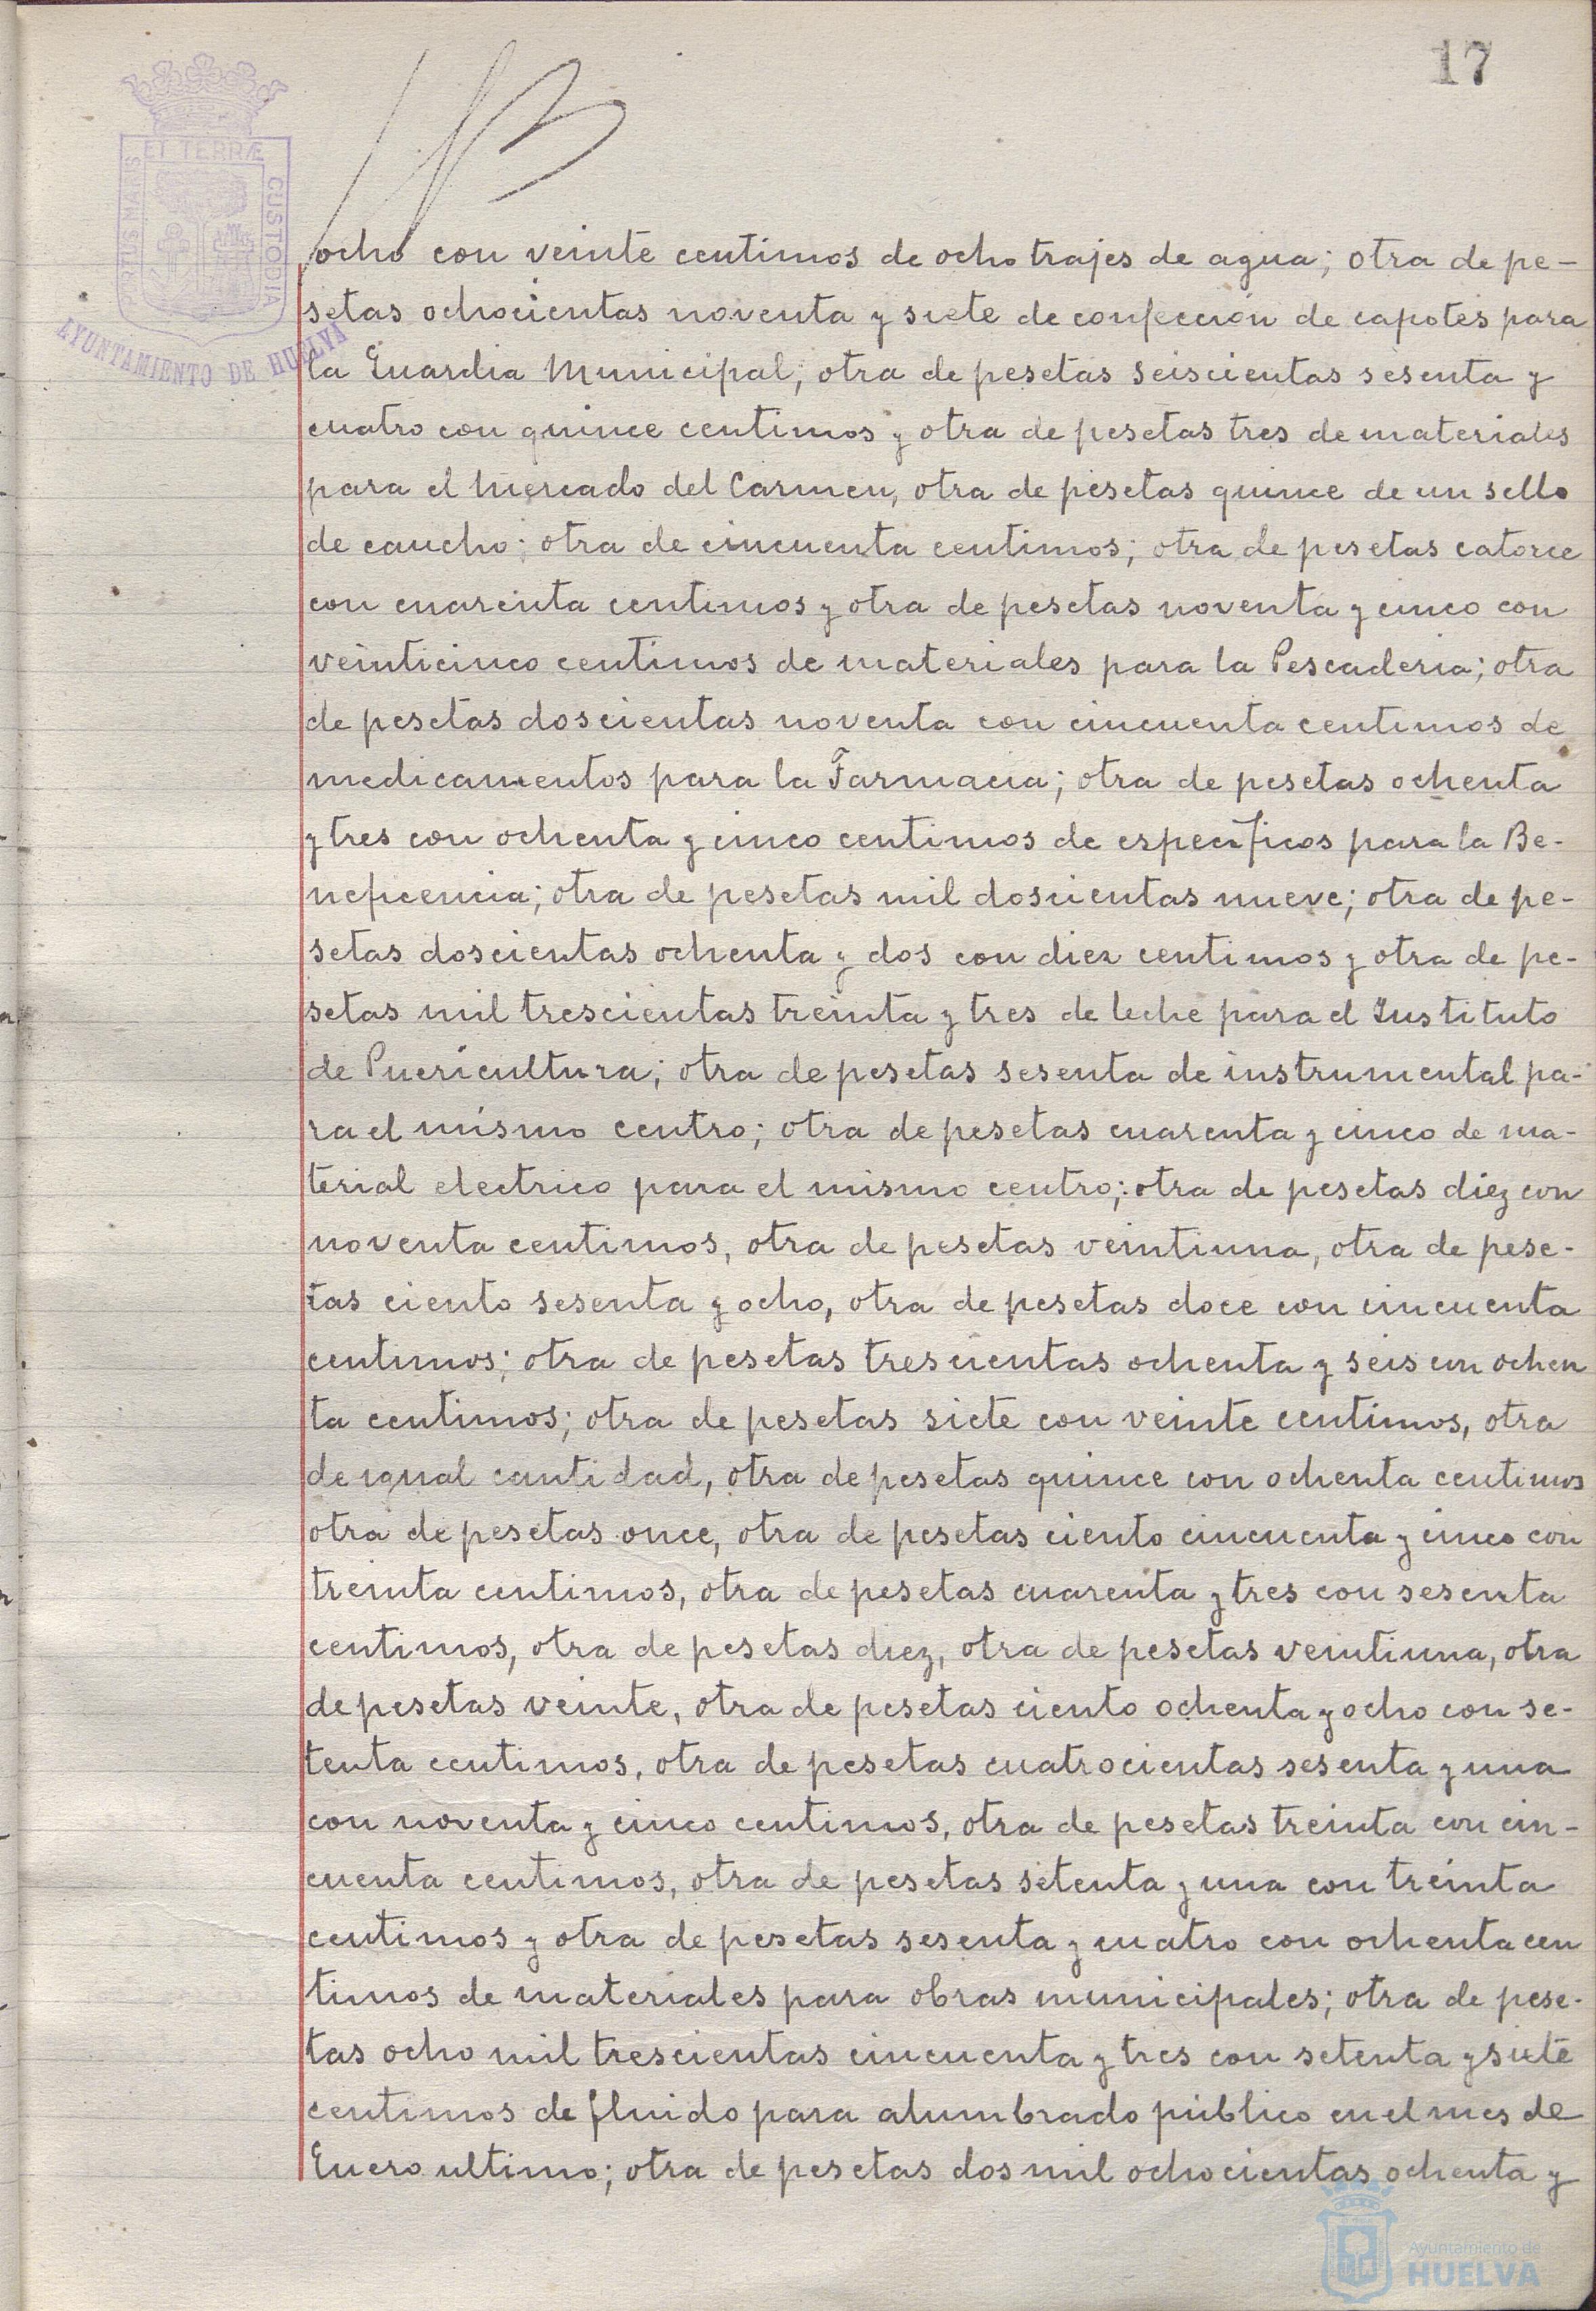 17
ET TERRÆ
PORTUS MARIS
CUSTODIA
AYUNTAMIENTO DE HUELVA
ocho con veinte centimos de ocho trajes de agua; otra de pe-
setas ochocientas noventa y siete de confección de capotes para
la Guardia Municipal; otra de pesetas seiscientas sesenta y
cuatro con quince centimos y otra de pesetas tres de materiales
para el Mercado del Carmen, otra de pesetas quince de un sello
de caucho; otra de cincuenta centimos; otra de pesetas catorce
con cuarenta centimos y otra de pesetas noventa y cinco con
veinticinco centimos de materiales para la Pescaderia; otra
de pesetas doscientas noventa con cincuenta centimos de
medicamentos para la Farmacia; otra de pesetas ochenta
y tres con ochenta y cinco centimos de especificos para la Be-
neficencia; otra de pesetas mil doscientas nueve; otra de pe-
setas doscientas ochenta y dos con diez centimos y otra de pe-
setas mil trescientas treinta y tres de leche para el Instituto
de Puericultura; otra de pesetas sesenta de instrumental pa-
ra el mismo centro; otra de pesetas cuarenta y cinco de ma-
terial electrico para el mismo centro; otra de pesetas diez con
noventa centimos, otra de pesetas veintiuna, otra de pese-
tas ciento sesenta y ocho, otra de pesetas doce con cincuenta
centimos; otra de pesetas trescientas ochenta y seis con ochen
ta centimos; otra de pesetas siete con veinte centimos, otra
de igual cantidad, otra de pesetas quince con ochenta centimos
otra de pesetas once, otra de pesetas ciento cincuenta y cinco con
treinta centimos, otra de pesetas cuarenta y tres con sesenta
centimos, otra de pesetas diez, otra de pesetas veintiuna, otra
de pesetas veinte, otra de pesetas ciento ochenta y ocho con se-
tenta centimos, otra de pesetas cuatrocientas sesenta y una
con noventa y cinco centimos, otra de pesetas treinta con cin-
cuenta centimos, otra de pesetas setenta y una con treinta
centimos y otra de pesetas sesenta y cuatro con ochenta cen
timos de materiales para obras municipales; otra de pese-
tas ocho mil trescientas cincuenta y tres con setenta y siete
centimos de fluido para alumbrado público en el mes de
Enero ultimo; otra de pesetas dos mil ochocientas ochenta y
Ayuntamiento de
HUELVA